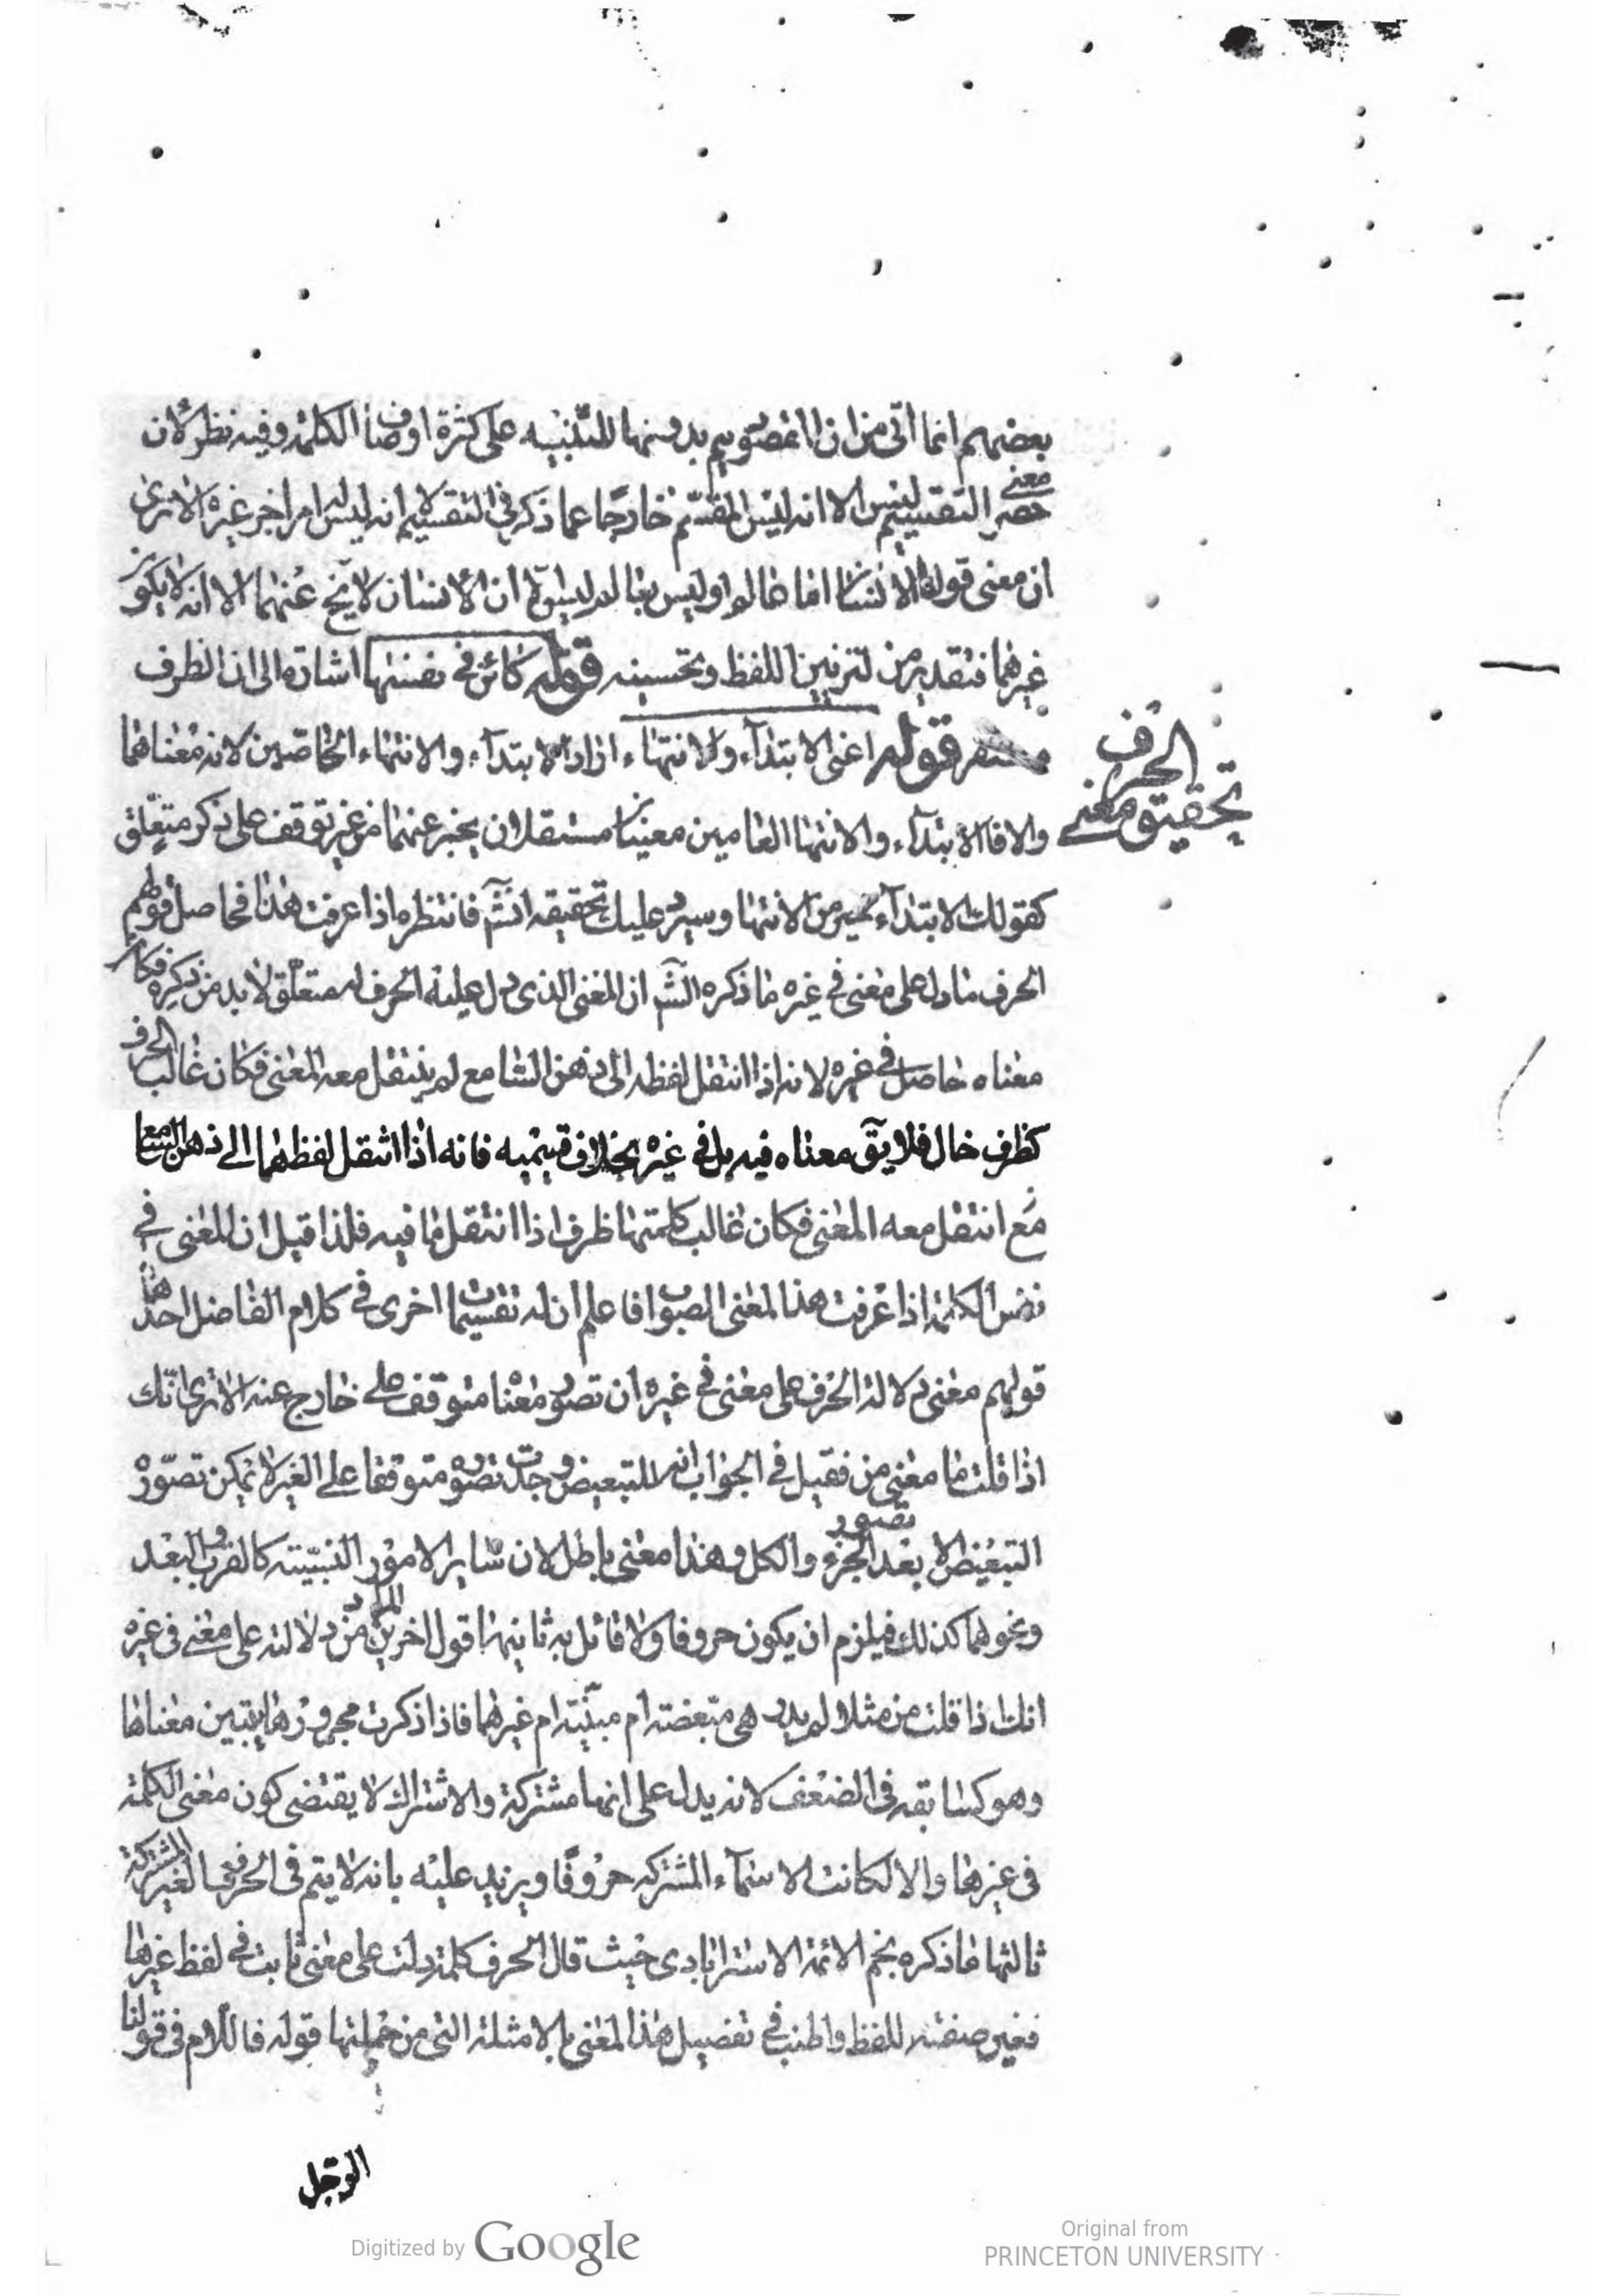 بعضهم انما اتى من ان المقصود يتم بدونها للتنبيه على كثرة اوصاف الكلمة وفيه نظر لان
معنى
حصر التقسيم ليس الا انه ليس المقسم خارجا عما ذكر فى التقسيم لا انه ليس امر اخر غيره الا ترى
ان معنى قولنا الانسان اما عالم او ليس بعالم ليس ان الانسان لا يخ عنهما الا انه لا يكون
غيرهما فتقدير من لتزيين اللفظ وتحسينه قوله كائن فى نفسها اشارة الى ان الظرف
مستقر قوله اعنى الابتداء والانتهاء اراد الابتداء والانتهاء الخاصين لانه معناهما
الحرف
تحقيق معنى
والا فالابتداء والانتهاء العامين معنيان مستقلان يخبر عنهما من غير توقف على ذكر متعلق
كقولك الابتداء خير من الانتها وسيرد عليك تحقيقه انش فانتظره اذا عرفت هذا فحاصل قولهم
الحرف ما دل على معنى فى غيره ما ذكره الش ان المعنى الذى دل عليه الحرف له متعلق لا بد من ذكره فكان
معناه حاصل فى غيره لانه اذا انتقل لفظه الى ذهن السامع لم ينتقل معه المعنى فكان غالب الحرف
كظرف خال فلا يق معناه فيه بل فى غيره بخلاف قسيميه فانه اذا انتقل لفظهما الى ذهن السامع
مع انتقل معه المعنى فكان غالب كلمتها ظرف اذا انتقل ما فيه فلذا قيل ان المعنى فى
نفس الكلمة اذا عرفت هذا المعنى الصواب فاعلم ان له تفسيرات اخرى فى كلام الفاضل احدهما
قولهم معنى دلالة الحرف على معنى فى غيره ان تصور معناه متوقف على خارج عنه الا ترى انك
اذا قلت ما معنى من فقيل فى الجواب انه للتبعيض وجدت تصوره متوقفا على الغير لا يمكن تصور
تصور
التبعيض الا بعد الجزء والكل وهذا معنى باطل لان ساير الامور النسبية كالقرب والبعد
المراد
ونحوهما كذلك فيلزم ان يكون حروفا ولا قائل به ثانيها قول اخرين من دلالته على معنى فى غيره
انك اذا قلت من مثلا لم يدر هى مبعضة ام مبينة ام غيرهما فاذا ذكرت مجرورها يتبين معناها
وهو كسابقه فى الضعف لانه يدل على انها مشتركة والاشتراك لا يقتضى كون معنى الكلمة
فى غيرها والا لكانت الاسماء المشتركة حروفا ويزيد عليه بانه لا يتم فى الحروف الغير المشتركة
ثالثها ما ذكره نجم الائمة الاسترابادى حيث قال الحرف كلمة دلت على معنى ثابت فى لفظ غيرها
فغير صفته للفظ واطنب فى تفصيل هذا المعنى بالامثلة التى من جملتها قوله فاللام فى قولنا
الرجل
Digitized by Google
Original from
PRINCETON UNIVERSITY